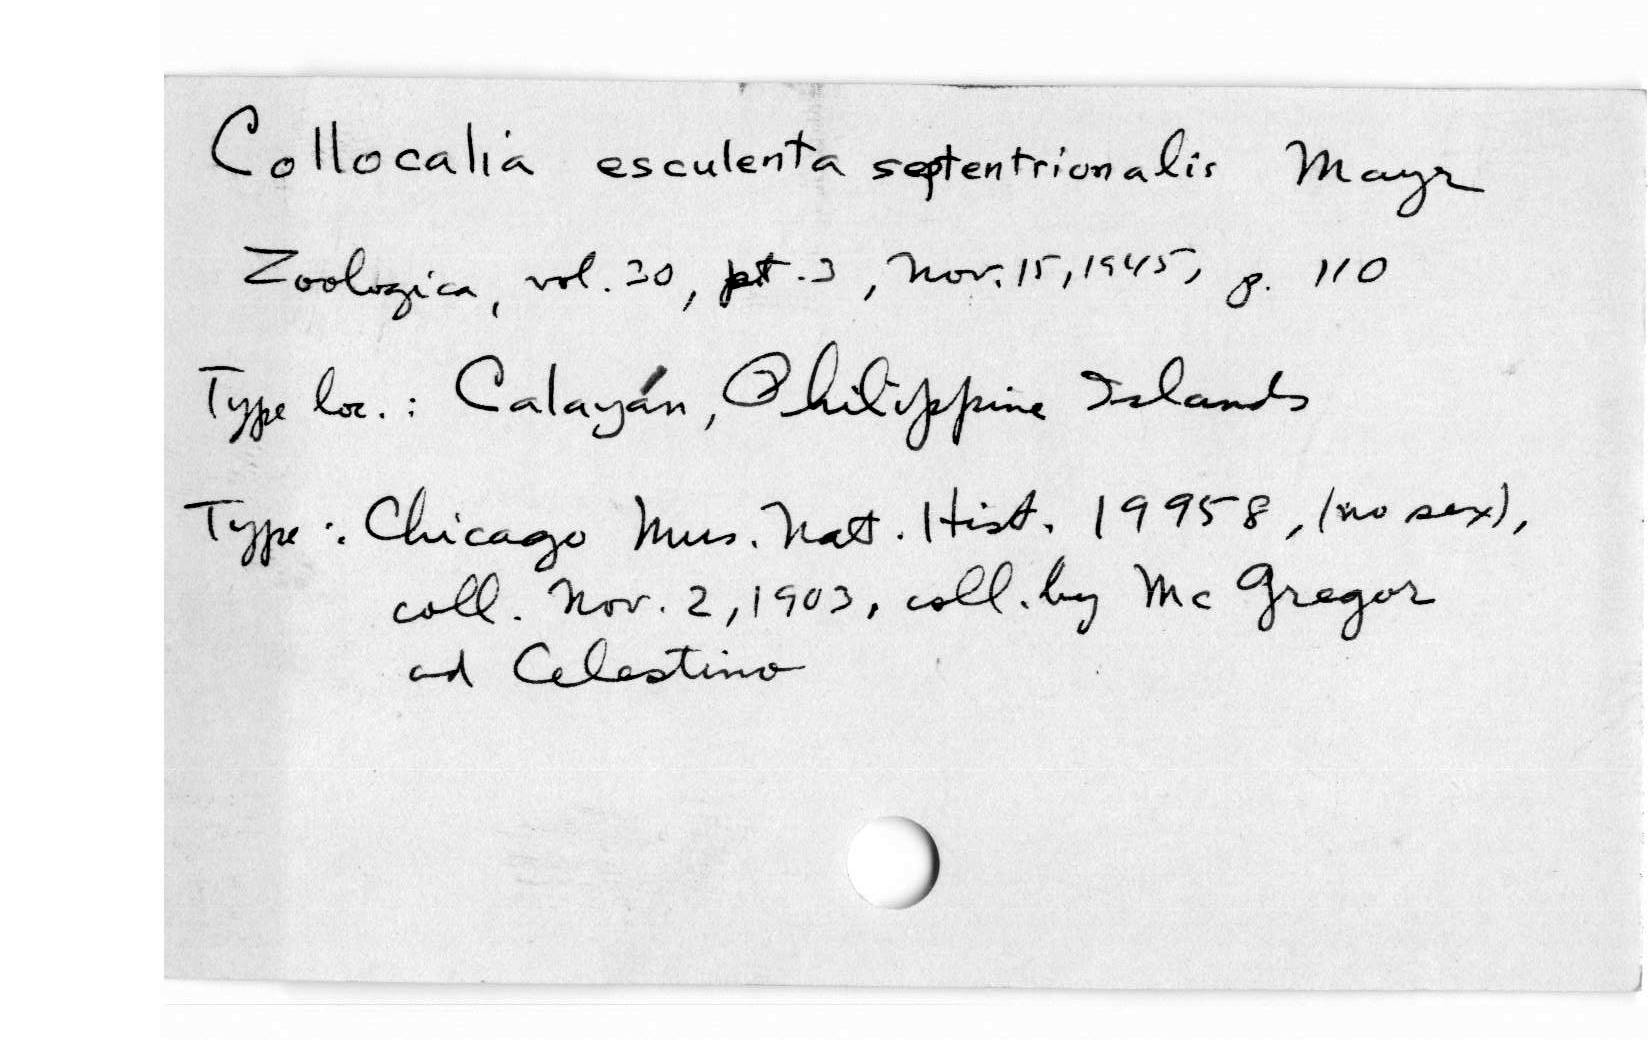 Collocalia esculenta septentrionalis Mayr
Zoologica, vol. 30, pt. 3, Nov. 15, 1945, p. 110
Type loc.: Calayán, Philippine Islands
Type: Chicago Mus. Nat. Hist. 19958, (no sex),
coll. Nov. 2, 1903, coll. by McGregor
and Celestino